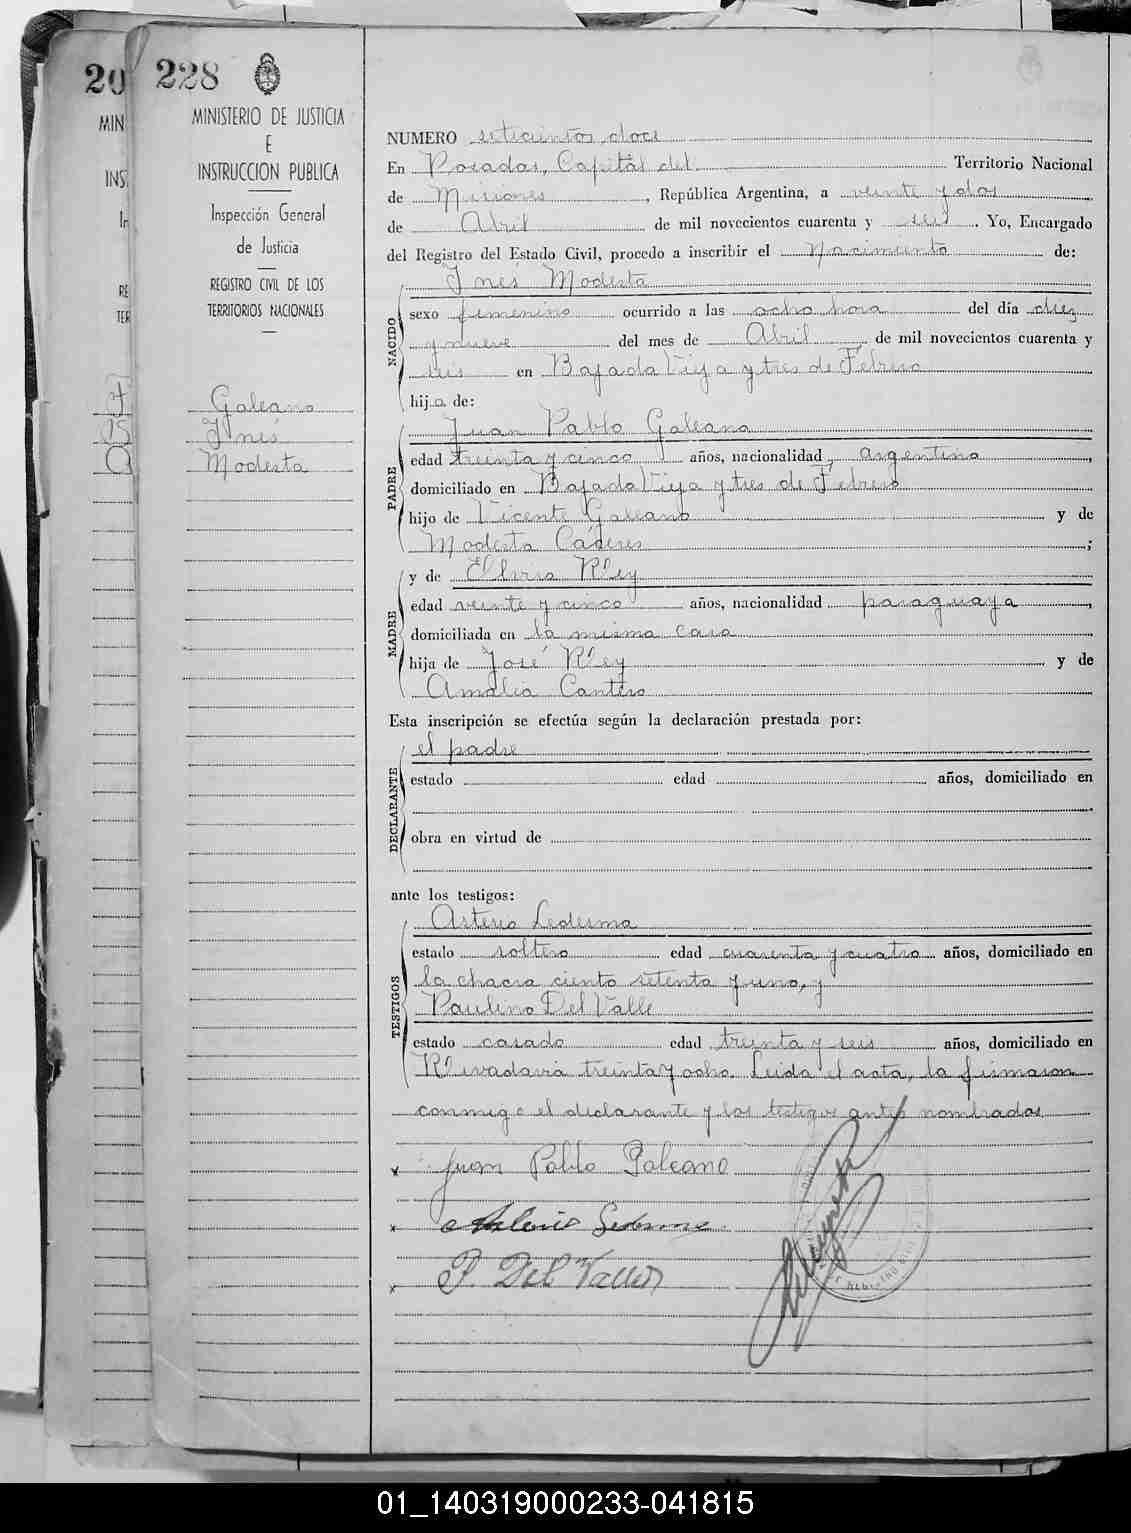 20
228
MINISTERIO DE JUSTICIA
E
INSTRUCCION PUBLICA
Inspección General
de Justicia
REGISTRO CIVIL DE LOS
TERRITORIOS NACIONALES
Galeano
Inés
Modesta
NUMERO setecientos doce
En Posadas, Capital del Territorio Nacional
de Misiones, República Argentina, a veinte y dos
de Abril de mil novecientos cuarenta y seis. Yo, Encargado
del Registro del Estado Civil, procedo a inscribir el Nacimiento de:
NACIDO
Inés Modesta
sexo femenino ocurrido a las ocho hora del día diez
y nueve del mes de Abril de mil novecientos cuarenta y
seis en Bajada Vieja y tres de Febrero
hija de:
PADRE
Juan Pablo Galeano
edad treinta y cinco años, nacionalidad argentina,
domiciliado en Bajada Vieja y tres de Febrero
hijo de Vicente Galeano y de
Modesta Cáceres;
MADRE
y de Elvira Rley
edad veinte y cinco años, nacionalidad paraguaya,
domiciliada en la misma casa
hija de José Rley y de
Amalia Cantero
Esta inscripción se efectúa según la declaración prestada por:
DECLARANTE
el padre
estado edad años, domiciliado en
obra en virtud de
ante los testigos:
TESTIGOS
Asterio Ledesma
estado soltero edad cuarenta y cuatro años, domiciliado en
la chacra ciento setenta y uno, y
Paulino Del Valle
estado casado edad treinta y seis años, domiciliado en
Rivadavia treinta y ocho. Leida el acta, la firmaron
conmigo el declarante y los testigos antes nombrados
x Juan Pablo Galeano
x Ledesma
x P. Del Valle
01_140319000233-041815